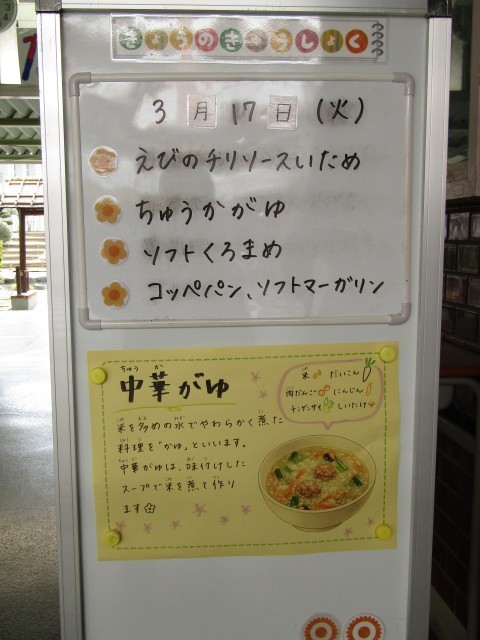 きょうのきゅうしょく
3月17日(火)
えびのチリソースいため
ちゅうかがゆ
ソフトくろまめ
コッペパン、ソフトマーガリン
ちゅうか
中華がゆ
米 だいこん
肉だんご にんじん
チンゲンサイ しいたけ
米を多めの水でやわらかく煮た
料理を"かゆ"といいます。
中華がゆは、味付けした
スープで米を煮て作り
ます